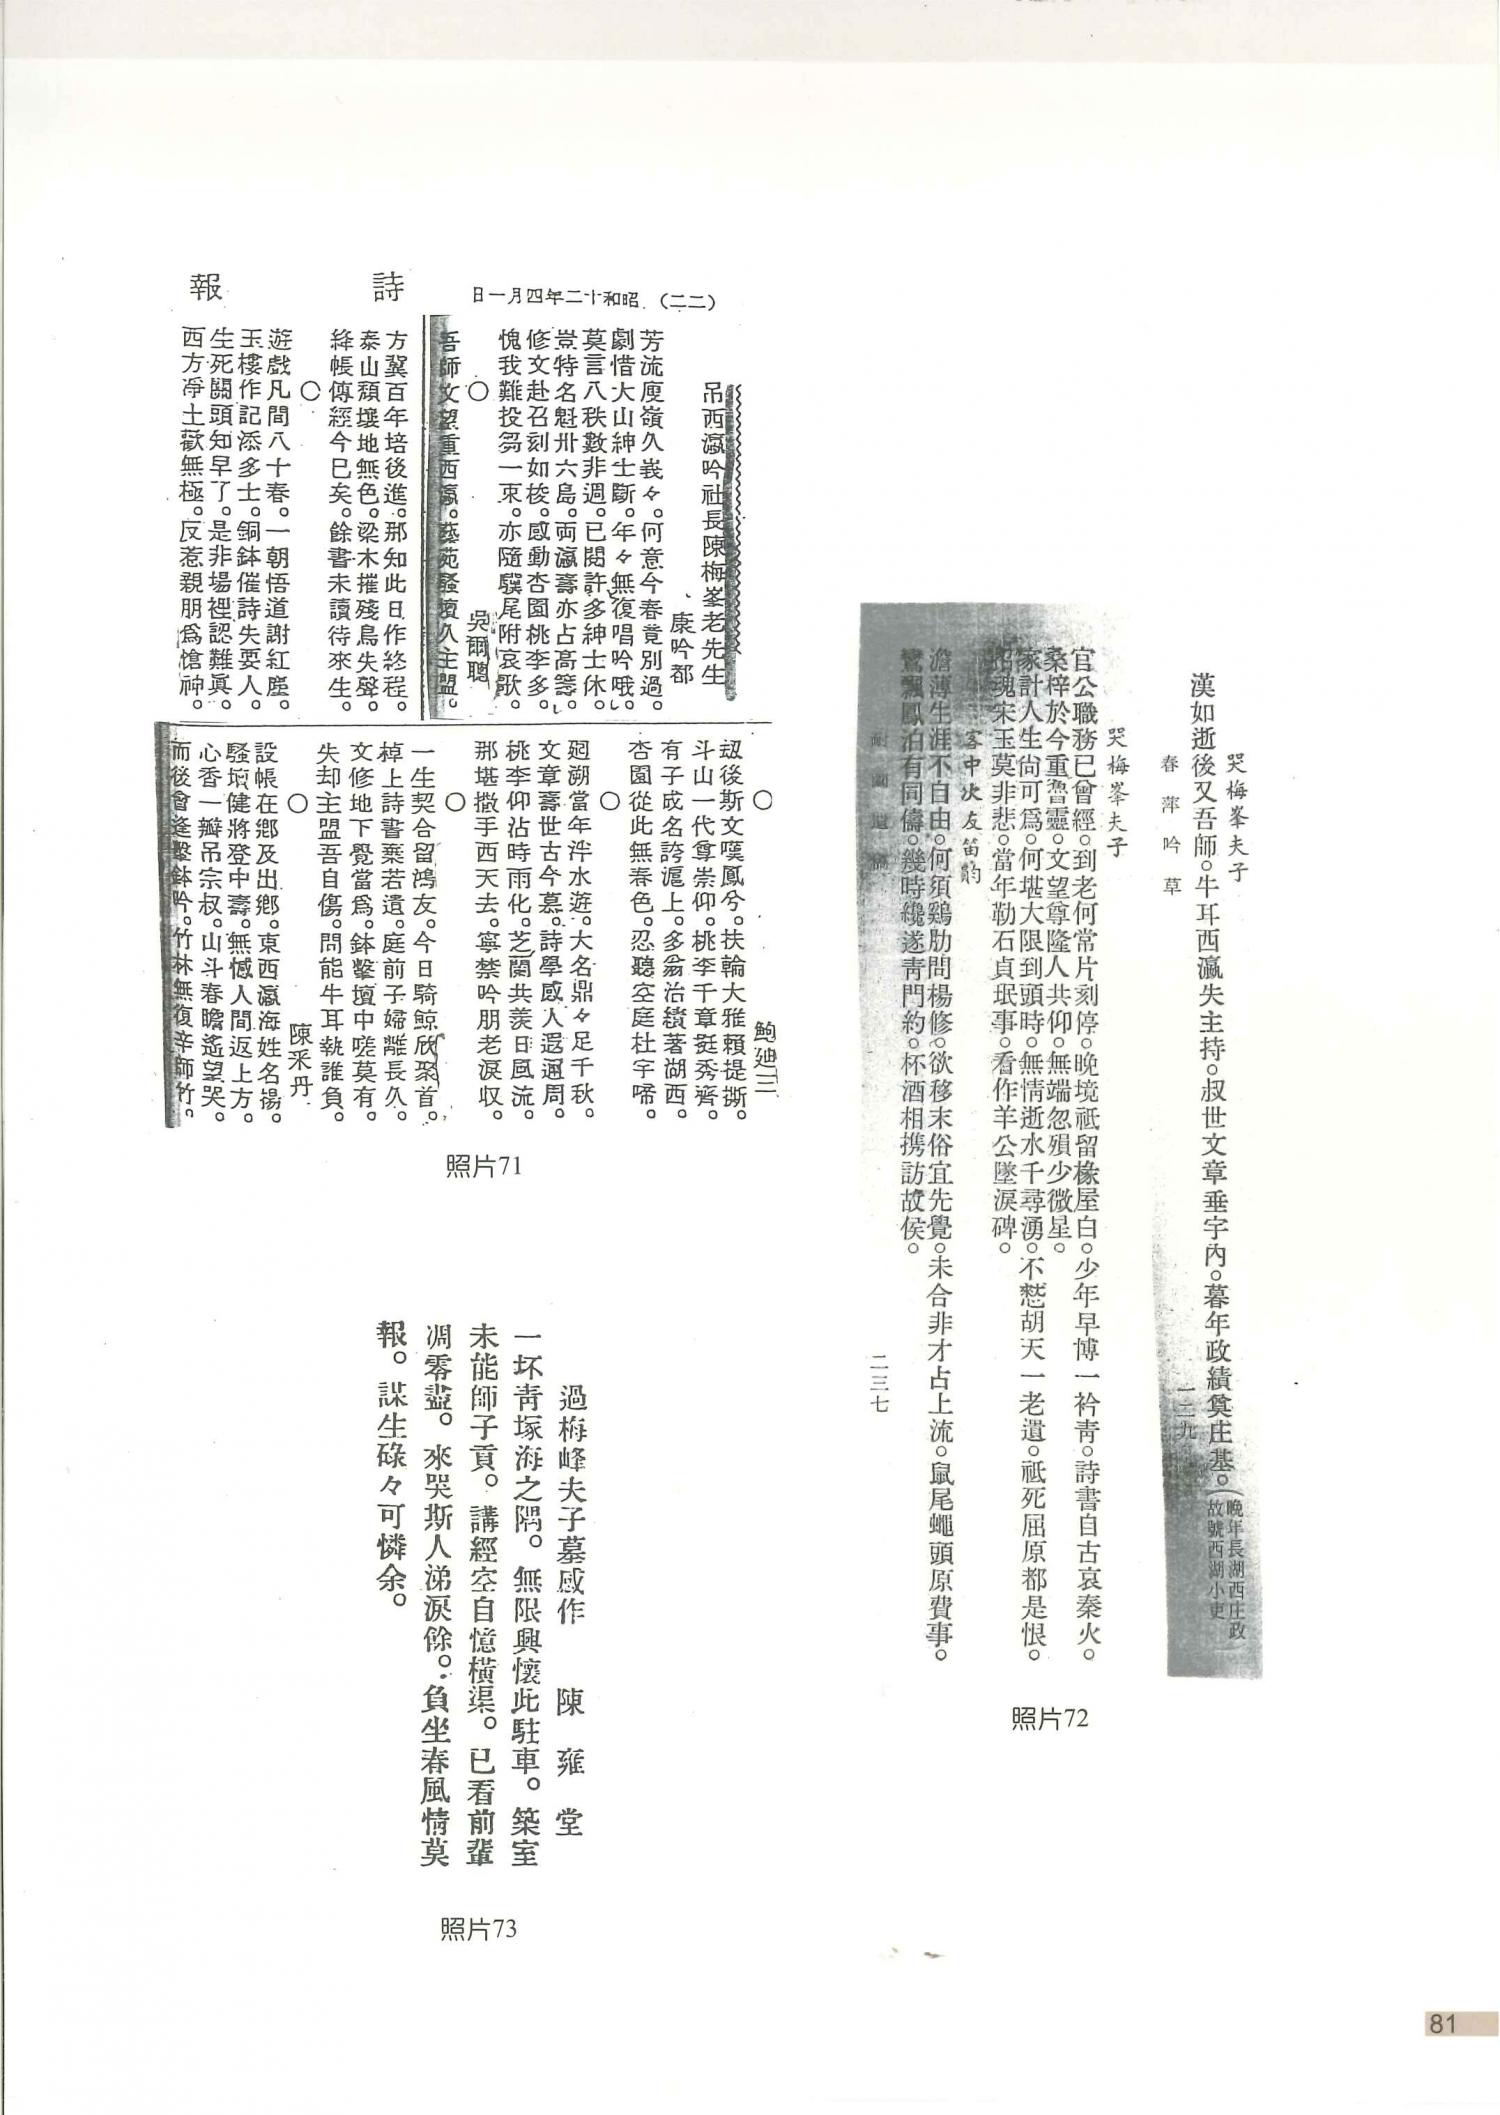 詩報
(二二) 昭和十二年四月一日
吊西瀛吟社長陳梅峯老先生
康吟都
芳流庾嶺久峩々。何意今春竟別過。
劇惜大山紳士斷。年々無復唱吟哦。
莫言八秩數非週。已閱許多紳士休。
豈特名魁卅六島。両瀛壽亦占高籌。
修文赴召刻如梭。感動杏園桃李多。
愧我難投芻一束。亦隨驥尾附哀歌。
○
吳爾聰
吾師文望重西瀛。藝苑騷壇久主盟。
方冀百年培後進。那知此日作終程。
泰山頹壞地無色。梁木摧殘鳥失聲。
絳帳傳經今已矣。餘書未讀待來生。
○
遊戲凡間八十春。一朝悟道謝紅塵。
玉樓作記添多士。銅鉢催詩失要人。
生死關頭知早了。是非場裡認難眞。
西方凈土歡無極。反惹親朋爲愴神。
○
鮑迪三
刼後斯文嘆鳳兮。扶輪大雅賴提撕。
斗山一代尊崇仰。桃李千章挺秀齊。
有子成名誇滬上。多翁治績著湖西。
杏園從此無春色。忍聽空庭杜宇啼。
○
廻溯當年泮水遊。大名鼎々足千秋。
文章壽世古今慕。詩學感人遐邇周。
桃李仰沾時雨化。芝蘭共羨日風流。
那堪撒手西天去。寧禁吟朋老淚収。
○
一生契合留鴻友。今日騎鯨欣聚首。
棹上詩書棄若遺。庭前子婦離長久。
文修地下覺當爲。鉢擊壇中嗟莫有。
失却主盟吾自傷。問能牛耳執誰負。
○
陳釆丹
設帳在鄉及出鄉。東西瀛海姓名揚。
騷壇健將登中壽。無憾人間返上方。
心香一瓣吊宗叔。山斗春瞻遙望哭。
而後會逢擊鉢吟。竹林無復辛師竹。
照片71
哭梅峯夫子
漢如逝後又吾師。牛耳西瀛失主持。叔世文章垂宇內。暮年政績奠庄基。(晚年長湖西庄政故號西湖小吏)
春萍吟草
一二九
哭梅峯夫子
官公職務已曾經。到老何常片刻停。晚境祇留椽屋白。少年早博一衿靑。詩書自古哀秦火。
桑梓於今重魯靈。文望尊隆人共仰。無端忽殞少微星。
家計人生尙可爲。何堪大限到頭時。無情逝水千尋湧。不憖胡天一老遺。祗死屈原都是恨。
招魂宋玉莫非悲。當年勒石貞珉事。看作羊公墜淚碑。
客中次友笛韵
澹薄生涯不自由。何須鷄肋問楊修。欲移末俗宜先覺。未合非才占上流。鼠尾蠅頭原費事。
鸞飄鳳泊有同儔。幾時纔遂靑門約。杯酒相携訪故侯。
耐園遺稿
二三七
照片72
過梅峰夫子墓感作　陳雍堂
一坏靑塚海之隅。無限興懷此駐車。築室
未能師子貢。講經空自憶橫渠。已看前輩
凋零盡。來哭斯人涕淚餘。負坐春風情莫
報。謀生碌々可憐余。
照片73
81